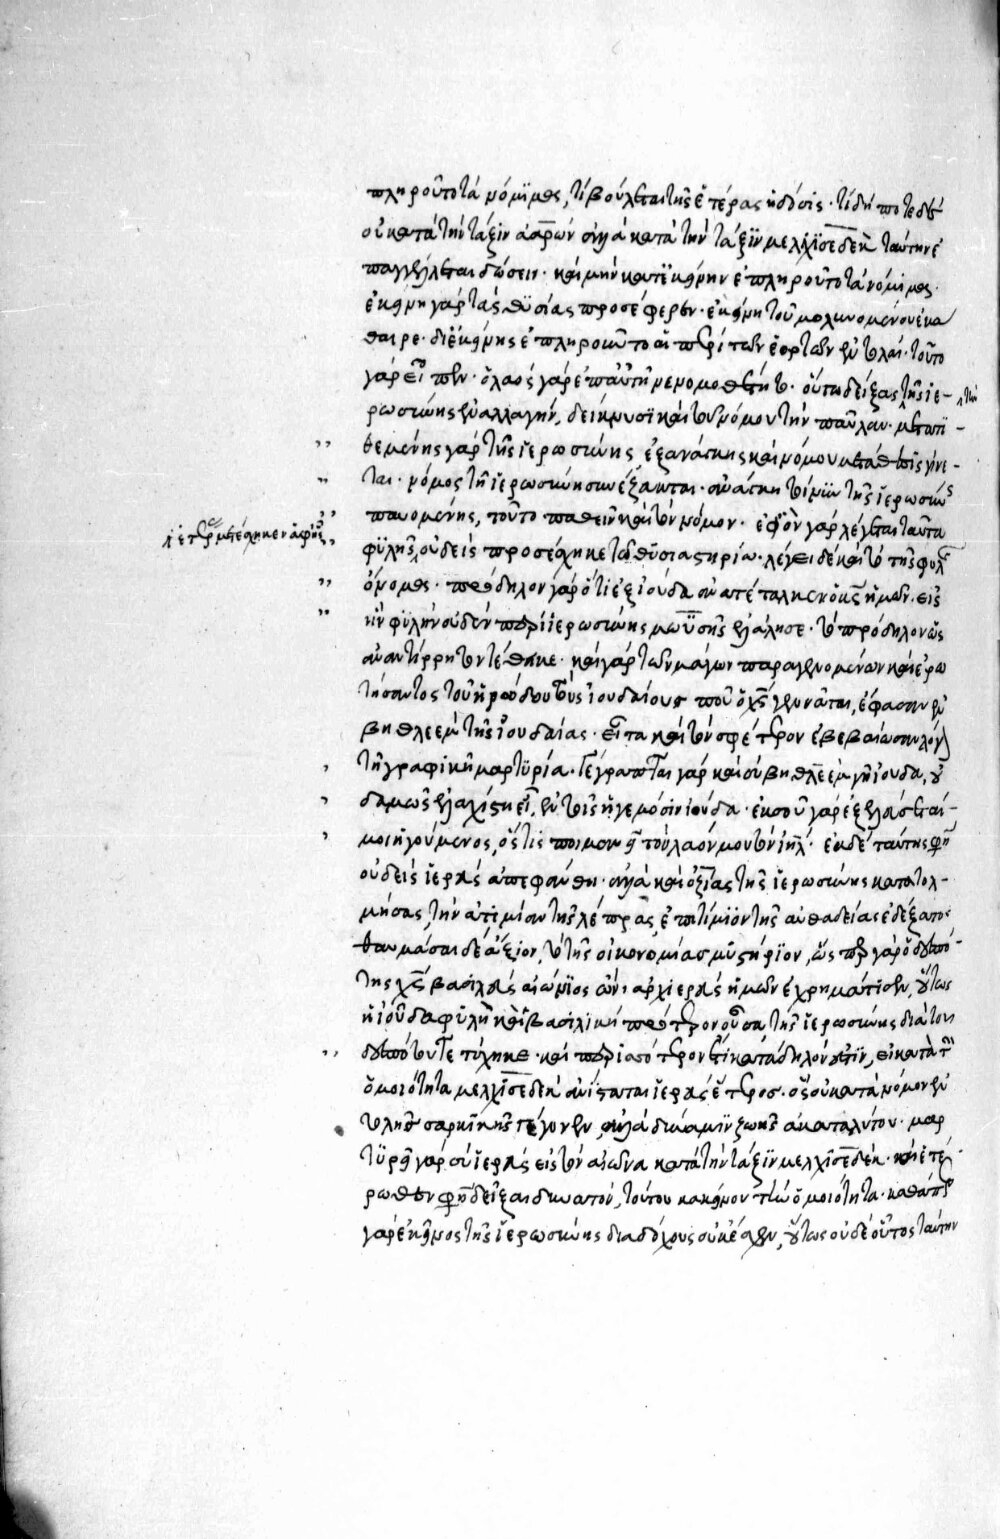 πληροῦτο τὰ νόμιμα, τί βούλεται τῆς ἑτέρας ἡ δόσις· τί δή ποτε δὲ
οὐ κατὰ τὴν τάξιν ἀαρὼν ἀλλὰ κατὰ τὴν τάξιν μελχισεδὲκ ταύτην ἐ
παγγέλλεται δώσειν· καὶ μὴν κατ' ἐκείνην ἐπληροῦτο τὰ νόμιμα·
ἐκείνη γὰρ τὰς θυσίας προσέφερεν· ἐκείνη τοῦ μολυνομένου ἐκά
θαιρε· δι' ἐκείνης ἐπληροῦντο αἱ περὶ τῶν ἑορτῶν ἐντολαί· τοῦτο
γὰρ εἶπεν· ὁ λαὸς γὰρ ἐπ' αὐτῇ νενομοθέτητο· οὕτω δείξας τῆς ἱε-
τὴν
ρωσύνης ἐναλλαγήν, δείκνυσι καὶ τοῦ νόμου τὴν παῦλαν· μετατι-
θεμένης γὰρ τῆς ἱερωσύνης ἐξ ἀνάγκης καὶ νόμου μετάθεσις γίνε-
ται· νόμος τῇ ἱερωσύνῃ συνέζευκται· ἀνάγκη τοίνυν τῆς ἱερωσύνης
παυομένης, τοῦτο παθεῖν καὶ τὸν νόμον· ἐφ' ὃν γὰρ λέγεται ταῦτα
φυλῆς ἑτέρας μετέσχηκεν ἀφ' ἧς
φυλῆς, οὐδεὶς προσέσχηκε τῷ θυσιαστηρίῳ· λέγει δὲ καὶ τὸ τῆς φυλῆς
ὄνομα· πρόδηλον γὰρ ὅτι ἐξ ἰούδα ἀνατέταλκεν ὁ κς ἡμῶν· εἰς
ἣν φυλὴν οὐδὲν περὶ ἱερωσύνης μωϋσῆς ἐλάλησε· τὸ πρόδηλον ὡς
ἀναντίρρητον τέθεικε· καὶ γὰρ τῶν μάγων παραγενομένων καὶ ἐρω
τήσαντος τοῦ ἡρώδου τοὺς ἰουδαίους ποῦ ὁ χς γεννᾶται, ἔφασαν ἐν
βηθλεὲμ τῆς ἰουδαίας· εἶτα καὶ τὸν σφέτερον ἐβεβαίωσαν λόγον
τῇ γραφικῇ μαρτυρίᾳ· γέγραπται γὰρ καὶ σὺ βηθλεὲμ γῆ ἰούδα, οὐ
δαμῶς ἐλαχίστη εἶ, ἐν τοῖς ἡγεμόσιν ἰούδα· ἐκ σοῦ γὰρ ἐξελεύσεταί
μοι ἡγούμενος, ὅστις ποιμανεῖ τὸν λαόν μου τὸν ιηλ· ἐκ δὲ ταύτης φησὶν
οὐδεὶς ἱερεὺς ἀπεφάνθη· ἀλλὰ καὶ ὀζίας τῆς ἱερωσύνης κατατολ-
μήσας, τὴν ἀτιμίαν τῆς λέπρας, ἐπιτίμιον τῆς αὐθαδείας ἐδέξατο·
θαυμάσαι δὲ ἄξιον, τὸ τῆς οἰκονομίας μυστήριον, ὥσπερ γὰρ ὁ δεσπό-
της χς βασιλεὺς αἰώνιος ὢν ἀρχιερεὺς ἡμῶν ἐχρημάτισεν, οὕτως
ἡ ἰούδα φυλὴ καὶ βασιλικὴ πρότερον οὖσα τῆς ἱερωσύνης διὰ τοῦ
δεσπότου τετύχηκε· καὶ περισσότερον ἔτι κατάδηλόν ἐστιν, εἰ κατὰ τὴν
ὁμοιότητα μελχισεδὲκ ἀνίσταται ἱερεὺς ἕτερος· ὃς οὐ κατὰ νόμον ἐν
τολῆς σαρκικῆς γέγονεν, ἀλλὰ δύναμιν ζωῆς ἀκαταλύτου· μαρ
τυρεῖ γὰρ σὺ ἱερεὺς εἰς τὸν αἰῶνα κατὰ τὴν τάξιν μελχισεδὲκ· καὶ ἑτέ
ρωθεν φησὶ δεῖξαι δυνατόν, τούτου κἀκεῖνον τὴν ὁμοιότητα· καθάπερ
γὰρ ἐκεῖνος τῆς ἱερωσύνης διαδόχους οὐκ ἔσχεν, οὕτως οὐδὲ οὗτος ταύτην